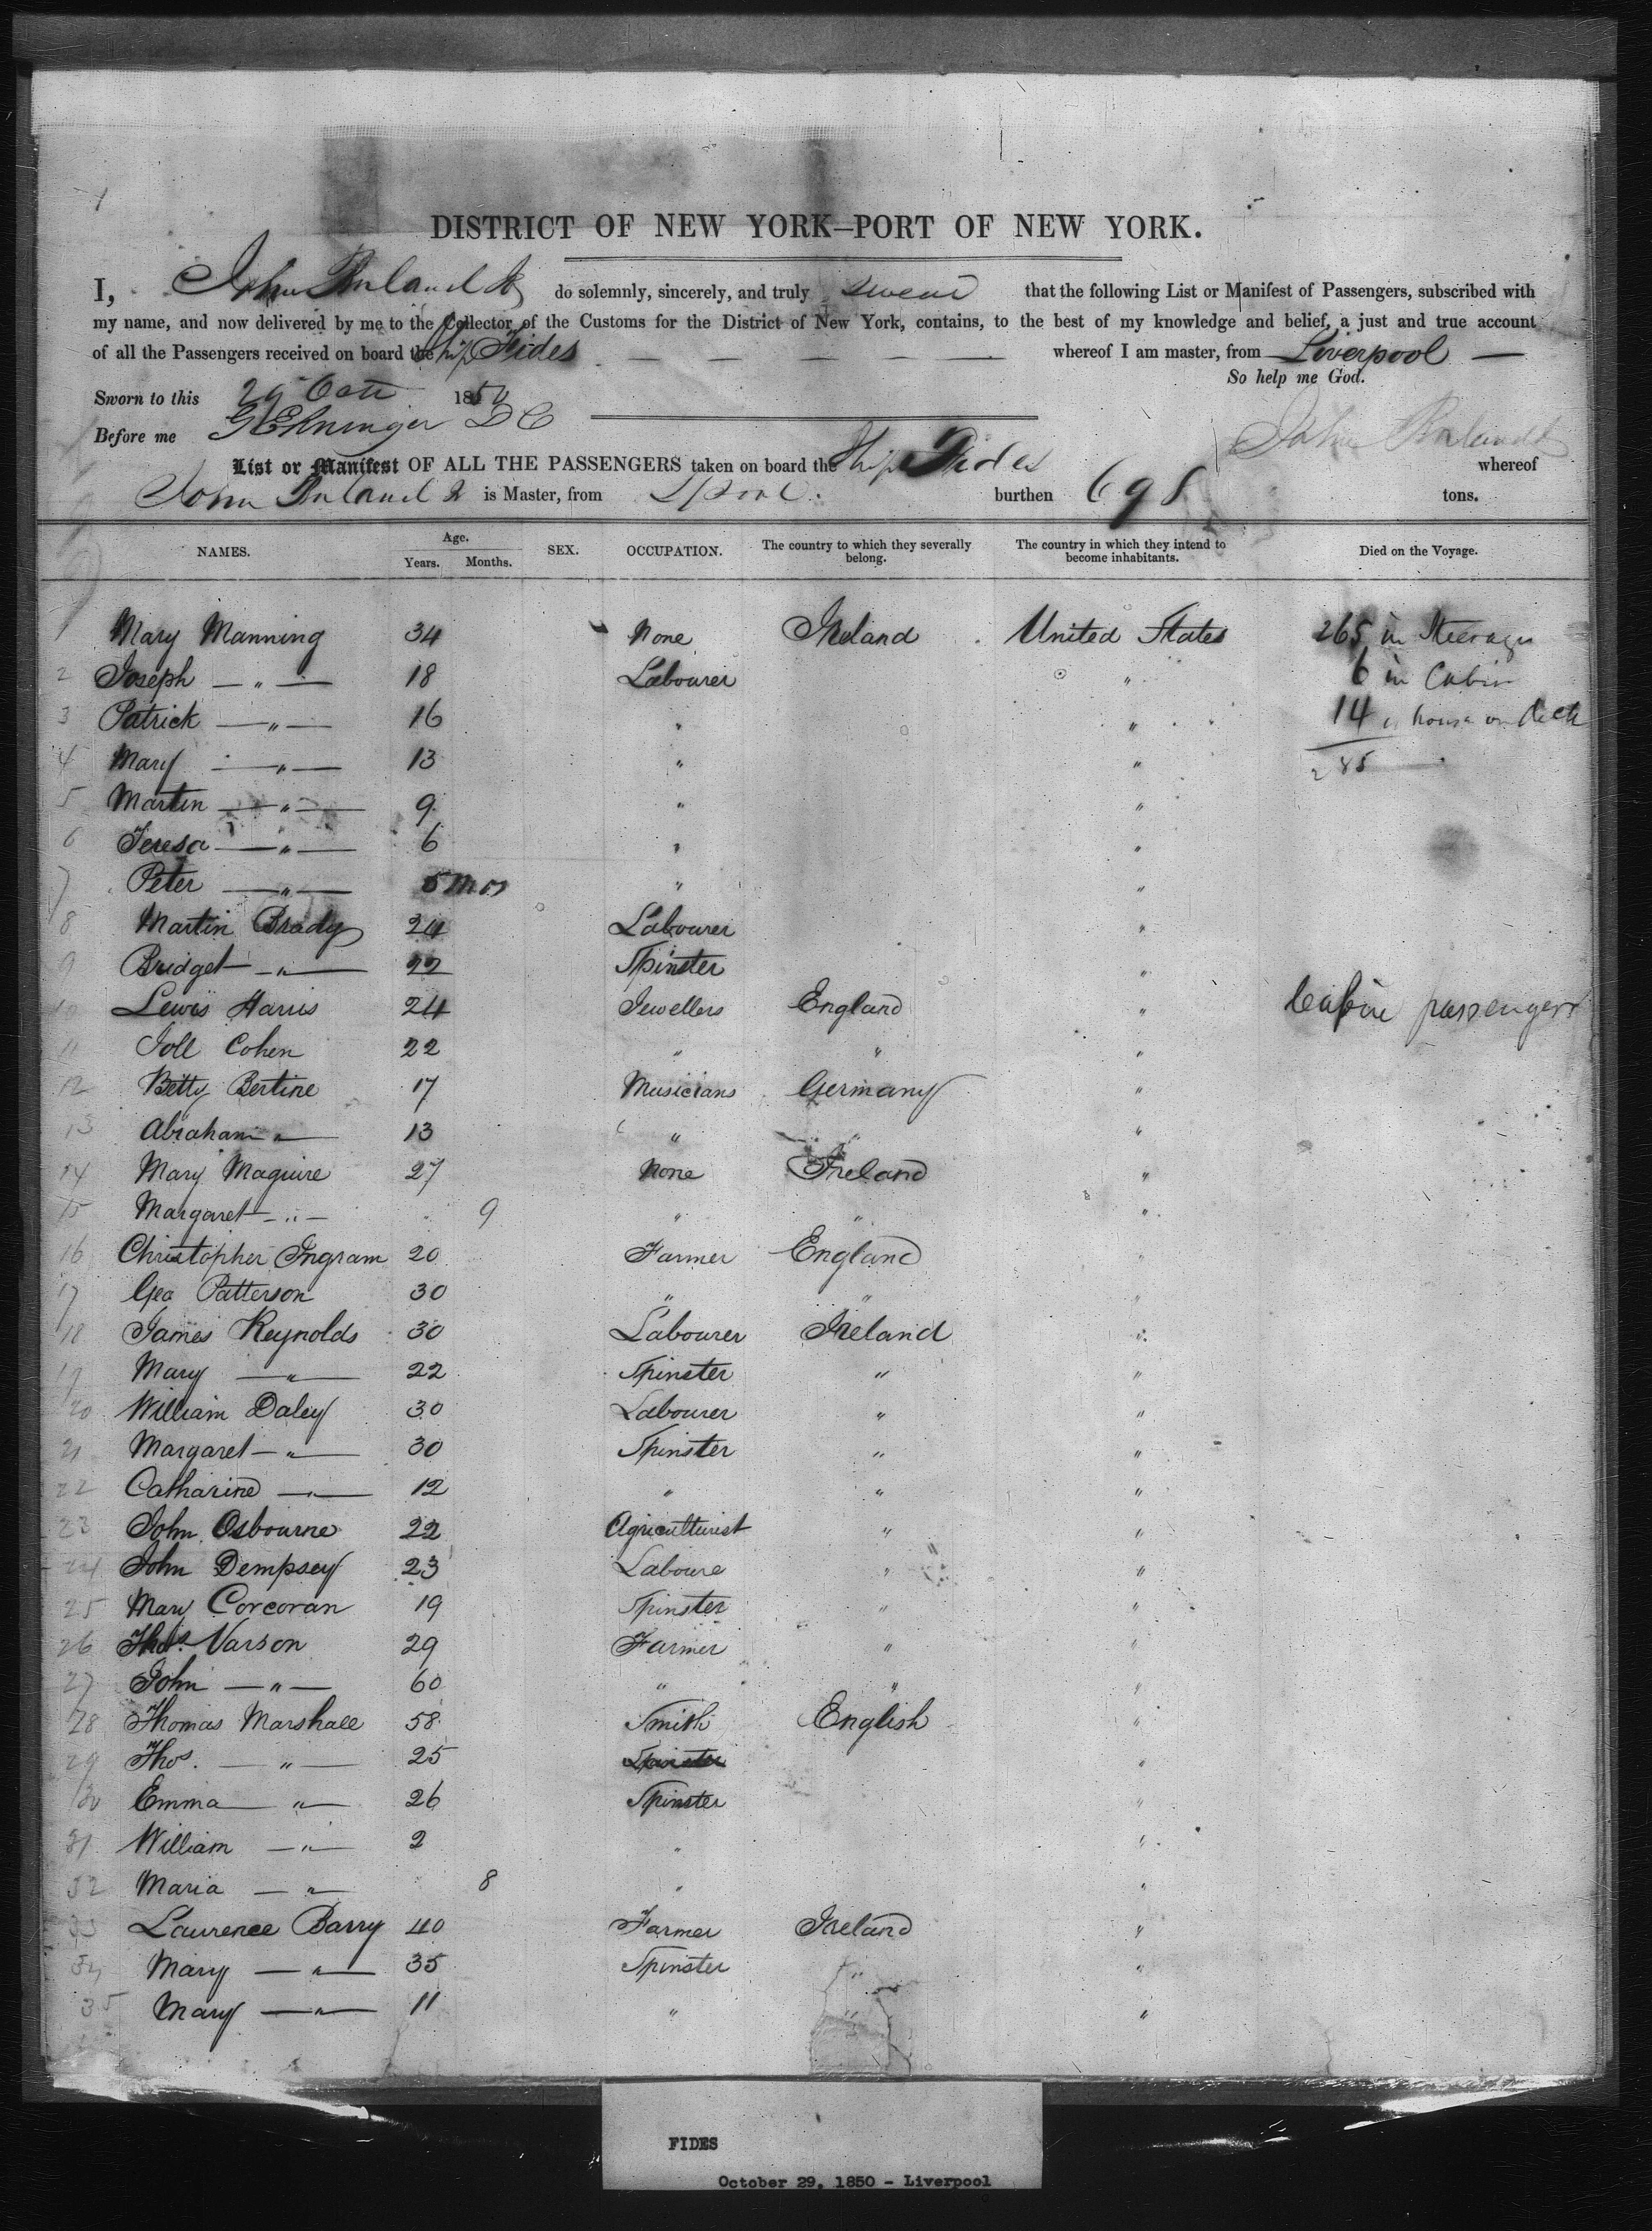 DISTRICT OF NEW YORK—PORT OF NEW YORK.
I, John do solemnly, sincerely, and truly swear that the following List or Manifest of Passengers, subscribed with
my name, and now delivered by me to the Collector of the Customs for the District of New York, contains, to the best of my knowledge and belief, a just and true account
of all the Passengers received on board the Ship Fides whereof I am master, from Liverpool —
So help me God.
Sworn to this 29 Octr 1850
Before me D C
John
List or Manifest OF ALL THE PASSENGERS taken on board the Ship Fides whereof
John is Master, from Lpool. burthen 698 tons.
NAMES. Age. Years. Months. SEX. OCCUPATION. The country to which they severally belong. The country in which they intend to become inhabitants. Died on the Voyage.
1 Mary Manning 34 None Ireland United States 265 in Steerage
2 Joseph — " — 18 Labourer " 6 in Cabin
3 Patrick — " — 16 " " 14 in house on deck
4 Mary — " — 13 " " 285
5 Martin — " — 9 " "
6 Teresa — " — 6 " "
7 Peter — " — 5 Mos " "
8 Martin Brady 24 Labourer "
9 Bridget — " — 22 Spinster "
10 Lewis Harris 24 Jewellers England " Cabin passengers
11 Joll Cohen 22 " " "
12 Betty Bertine 17 Musicians Germany "
13 Abraham " — 13 " " "
14 Mary Maguire 27 None Ireland "
15 Margaret — " — 9 " " "
16 Christopher Ingram 20 Farmer England "
17 Geo Patterson 30 " " "
18 James Reynolds 30 Labourer Ireland "
19 Mary — " — 22 Spinster " "
20 William Daley 30 Labourer " "
21 Margaret — " — 30 Spinster " "
22 Catharine — " — 12 " " "
23 John Osbourne 22 Agriculturist " "
24 John Dempsey 23 Laboure " "
25 Mary Corcoran 19 Spinster " "
26 Thos. Varson 29 Farmer " "
27 John — " — 60 " " "
28 Thomas Marshall 58 Smith English "
29 Thos. — " — 25 Spinster "
30 Emma — " — 26 Spinster "
31 William — " — 2 " "
32 Maria — " — 8 " "
33 Laurence Barry 40 Farmer Ireland "
34 Mary — " — 35 Spinster " "
35 Mary — " — 11 " " "
FIDES
October 29, 1850 - Liverpool